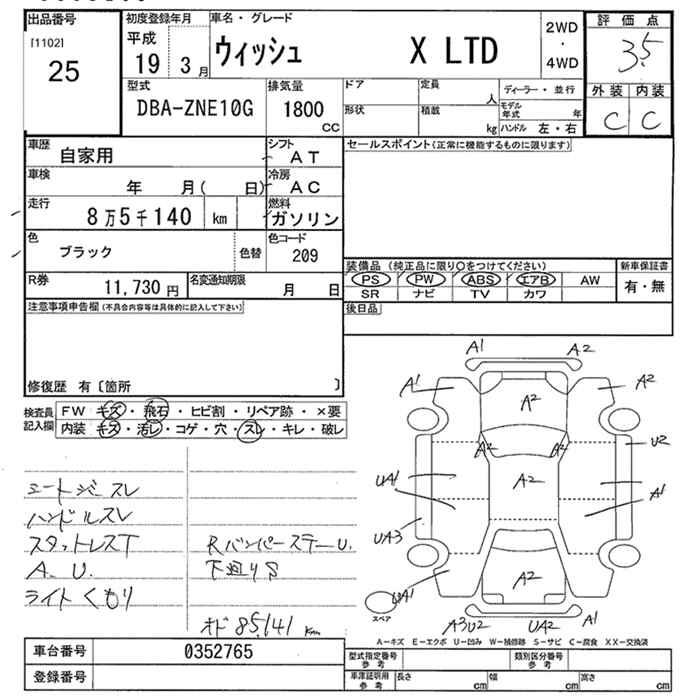 出品番号
[1102]
25
初度登録年月
平成
19 3月
車名・グレード
ウィッシュ X LTD
2WD
・
4WD
評価点
3.5
外装 内装
C C
型式
DBA-ZNE10G
排気量
1800
CC
ドア
形状
定員
人
積載
kg
ディーラー・並行
モデル年式 年
ハンドル 左・右
車歴
自家用
シフト
AT
車検
年 月( 日)
冷房
AC
走行
8万5千140 km
燃料
ガソリン
色
ブラック
色替
色コード
209
R券
11,730円
名変通知期限
月 日
セールスポイント(正常に機能するものに限ります)
装備品 (純正品に限り○をつけてください)
新車保証書
PS PW ABS エアB AW
有・無
SR ナビ TV カワ
後日品
注意事項申告欄(不具合内容等は具体的に記入して下さい)
修復歴 有〔箇所 〕
検査員記入欄
FW キズ・飛石・ヒビ割・リペア跡・×要
内装 キズ・汚レ・コゲ・穴・スレ・キレ・破レ
シートジミ スレ
ハンドルスレ
スタットレスT
A. U.
ライトくもり
Rバンパーステー U.
下廻りS
オド 85,141 km
A1 A2
A1 A2 A2
A2 A2
U2
UA1 A2 A1
UA3
UA1 A2
スペア
A3U2 UA2 A1
A-キズ E-エクボ U-凹み W-補修跡 S-サビ C-腐食 XX-交換済
車台番号 0352765
登録番号
型式指定番号
参考
類別区分番号
参考
車庫証明用
参考
長さ cm 幅 cm 高さ cm